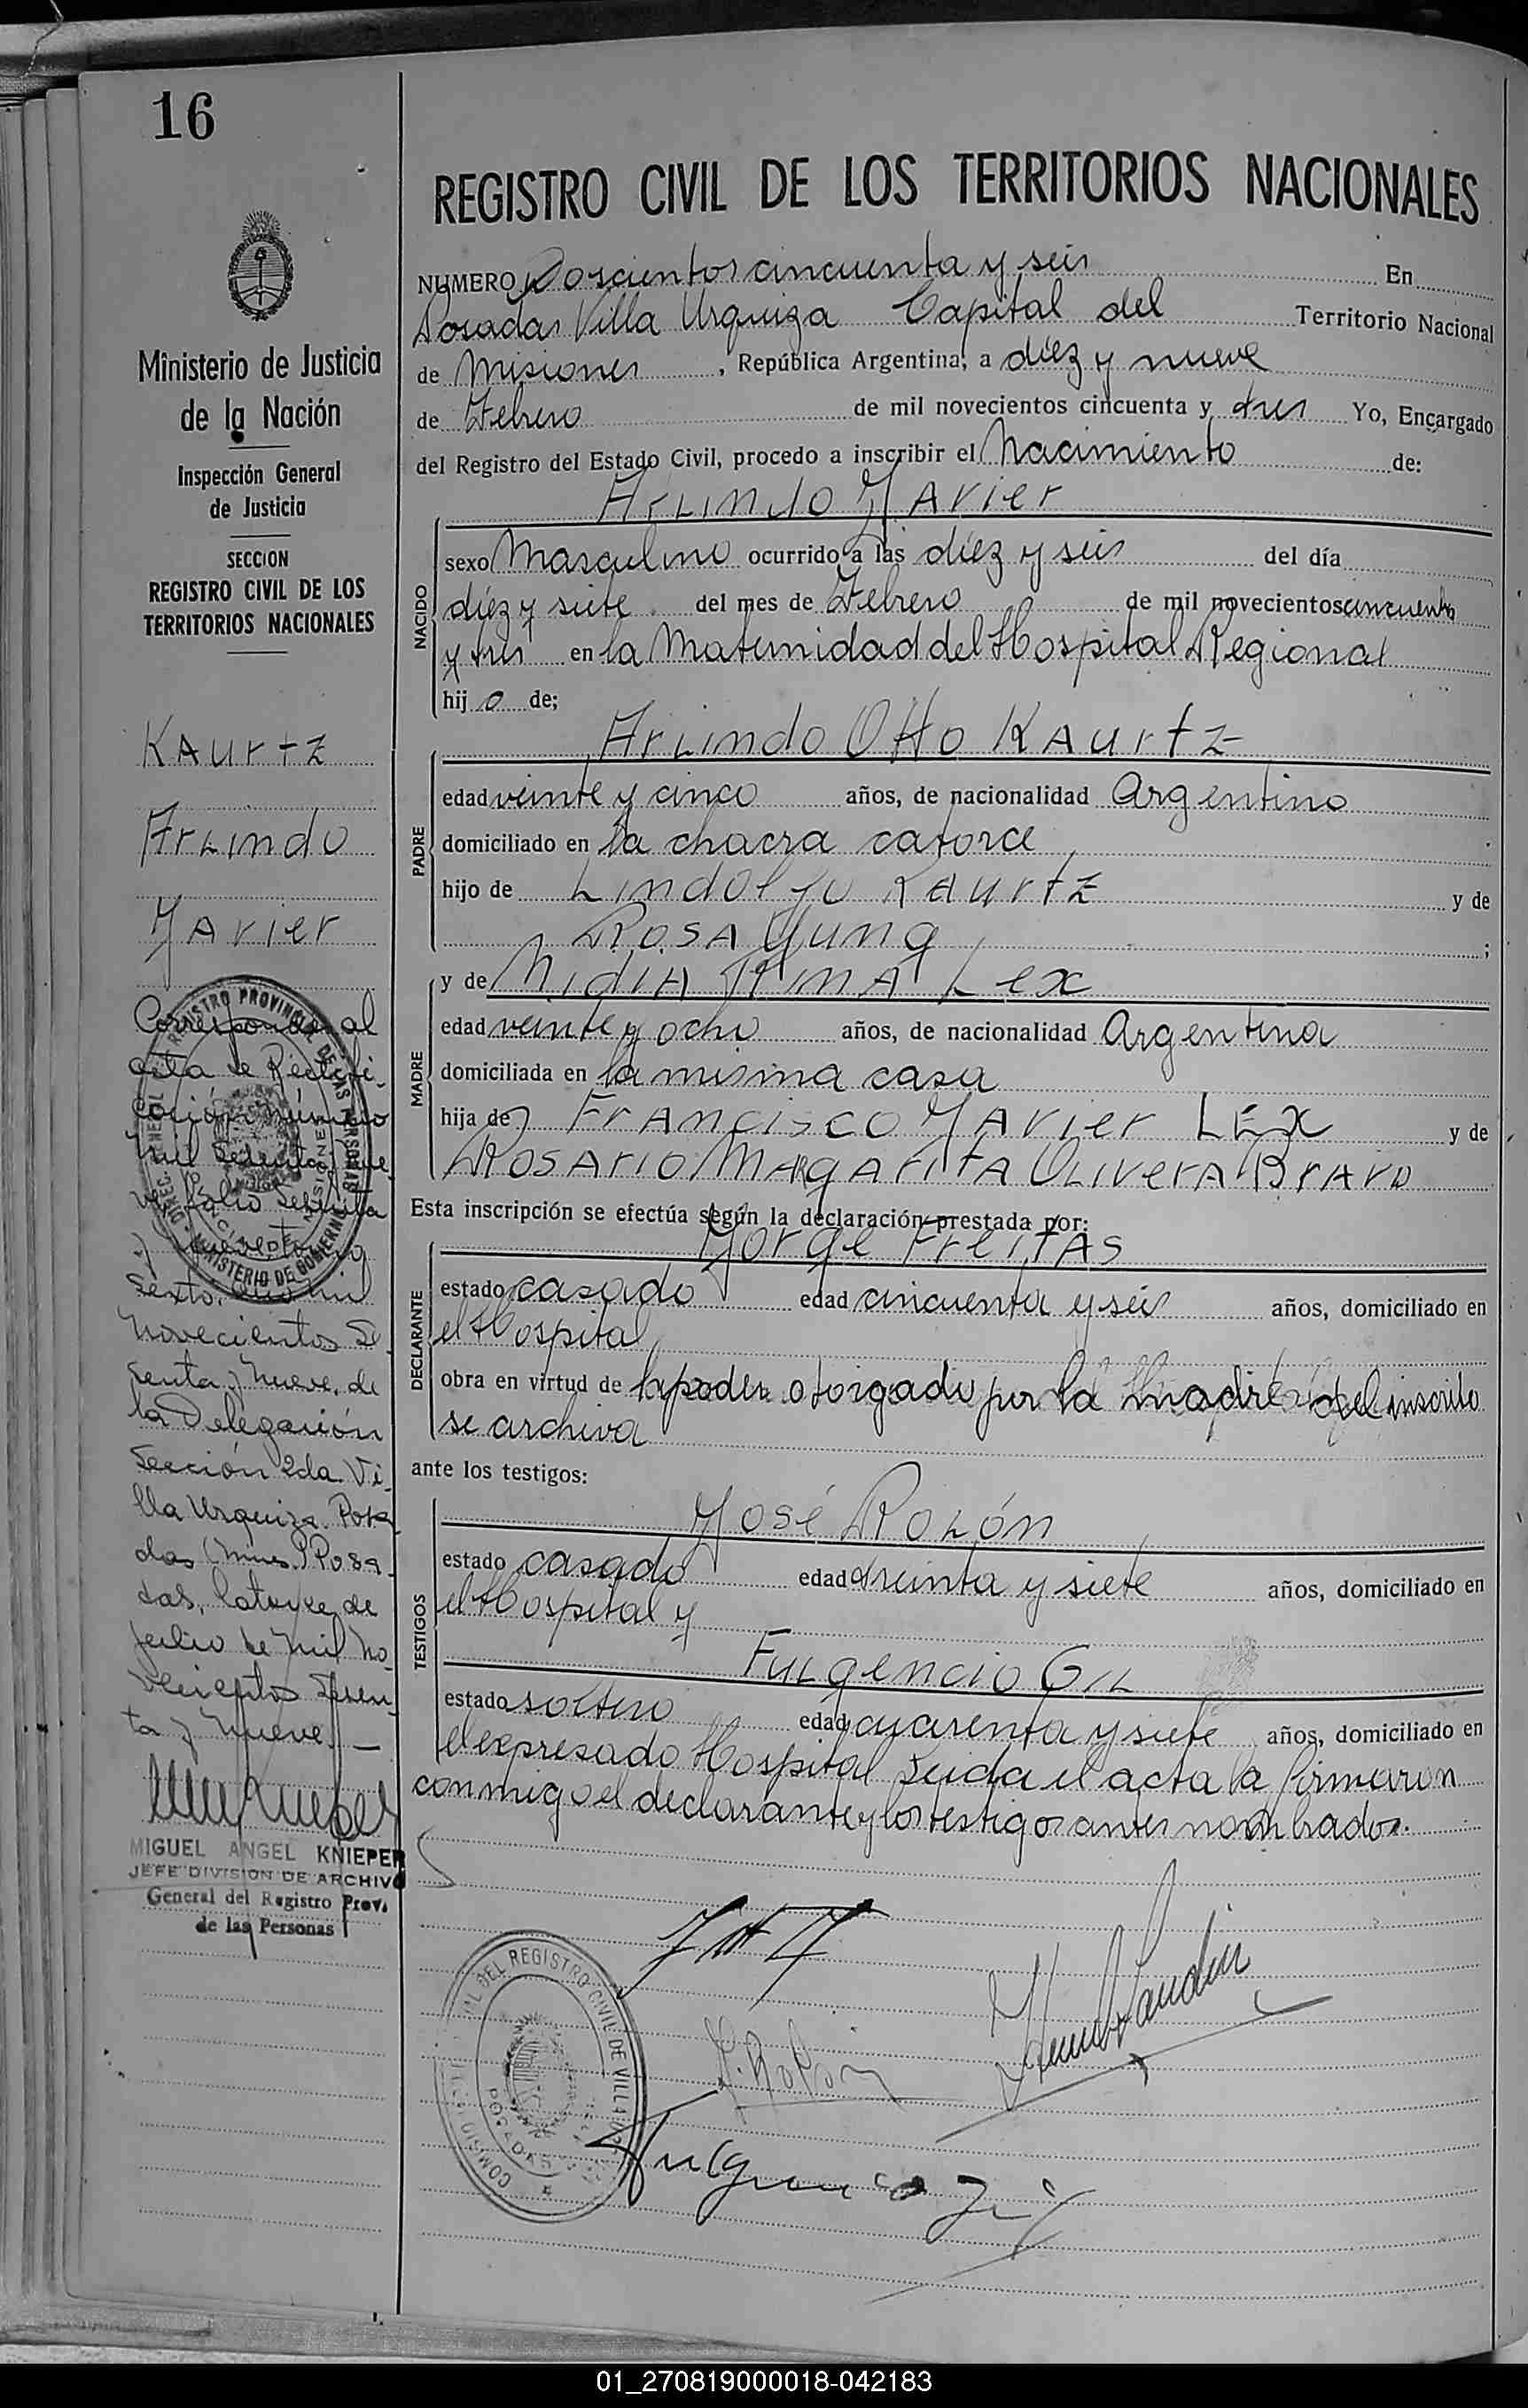 16
Ministerio de Justicia
de la Nación
Inspección General
de Justicia
SECCION
REGISTRO CIVIL DE LOS
TERRITORIOS NACIONALES
Kaurtz
Arlindo
Javier
Corresponde al
acta de Rectifi-
cación número
mil sesenta nue
ve folio sesenta
y nueve tomo
sexto, año mil
novecientos se
senta y nueve, de
la Delegación
Sección 2da. Vi-
lla Urquiza. Posa
das (Mnes.) Posa-
das, catorce de
julio de mil no-
vecientos sesen-
ta y nueve. —
MIGUEL ANGEL KNIEPER
JEFE DIVISION DE ARCHIVO
General del Registro Prov.
de las Personas
REGISTRO CIVIL DE LOS TERRITORIOS NACIONALES
NUMERO Doscientos cincuenta y seis En
Posadas Villa Urquiza Capital del Territorio Nacional
de Misiones, República Argentina, a diez y nueve
de Febrero de mil novecientos cincuenta y tres Yo, Encargado
del Registro del Estado Civil, procedo a inscribir el Nacimiento de:
Arlindo Javier
NACIDO
sexo Masculino ocurrido a las diez y seis del día
diez y siete del mes de Febrero de mil novecientos cincuenta
y tres en la Maternidad del Hospital Regional
hijo de;
Arlindo Otto Kaurtz
PADRE
edad veinte y cinco años, de nacionalidad Argentino
domiciliado en la chacra catorce,
hijo de Lindolfo Kaurtz y de
Rosa Yung;
MADRE
y de Nidia Irma Lex
edad veinte y ocho años, de nacionalidad Argentina
domiciliada en la misma casa
hija de Francisco Javier Lex y de
Rosario Margarita Olivera Bravo
Esta inscripción se efectúa según la declaración prestada por:
Jorge Freitas
DECLARANTE
estado casado edad cincuenta y seis años, domiciliado en
el Hospital,
obra en virtud de poder otorgado por la madre del inscrito
se archiva
ante los testigos:
José Rolón
TESTIGOS
estado casado edad treinta y siete años, domiciliado en
el Hospital y
Fulgencio Gil
estado soltero edad cuarenta y siete años, domiciliado en
el expresado Hospital Leida el acta la firmaron
conmigo el declarante y los testigos antes nombrados.
J. Rolón
Fulgencio Gil
01_270819000018-042183